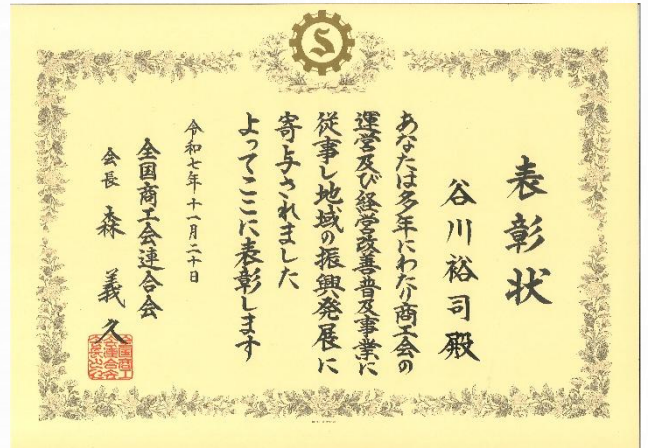 表彰状
谷川裕司殿
あなたは多年にわたり商工会の
運営及び経営改善普及事業に
従事し地域の振興発展に
寄与されました
よってここに表彰します
令和七年十一月二十日
全国商工会連合会
会長 森 義久